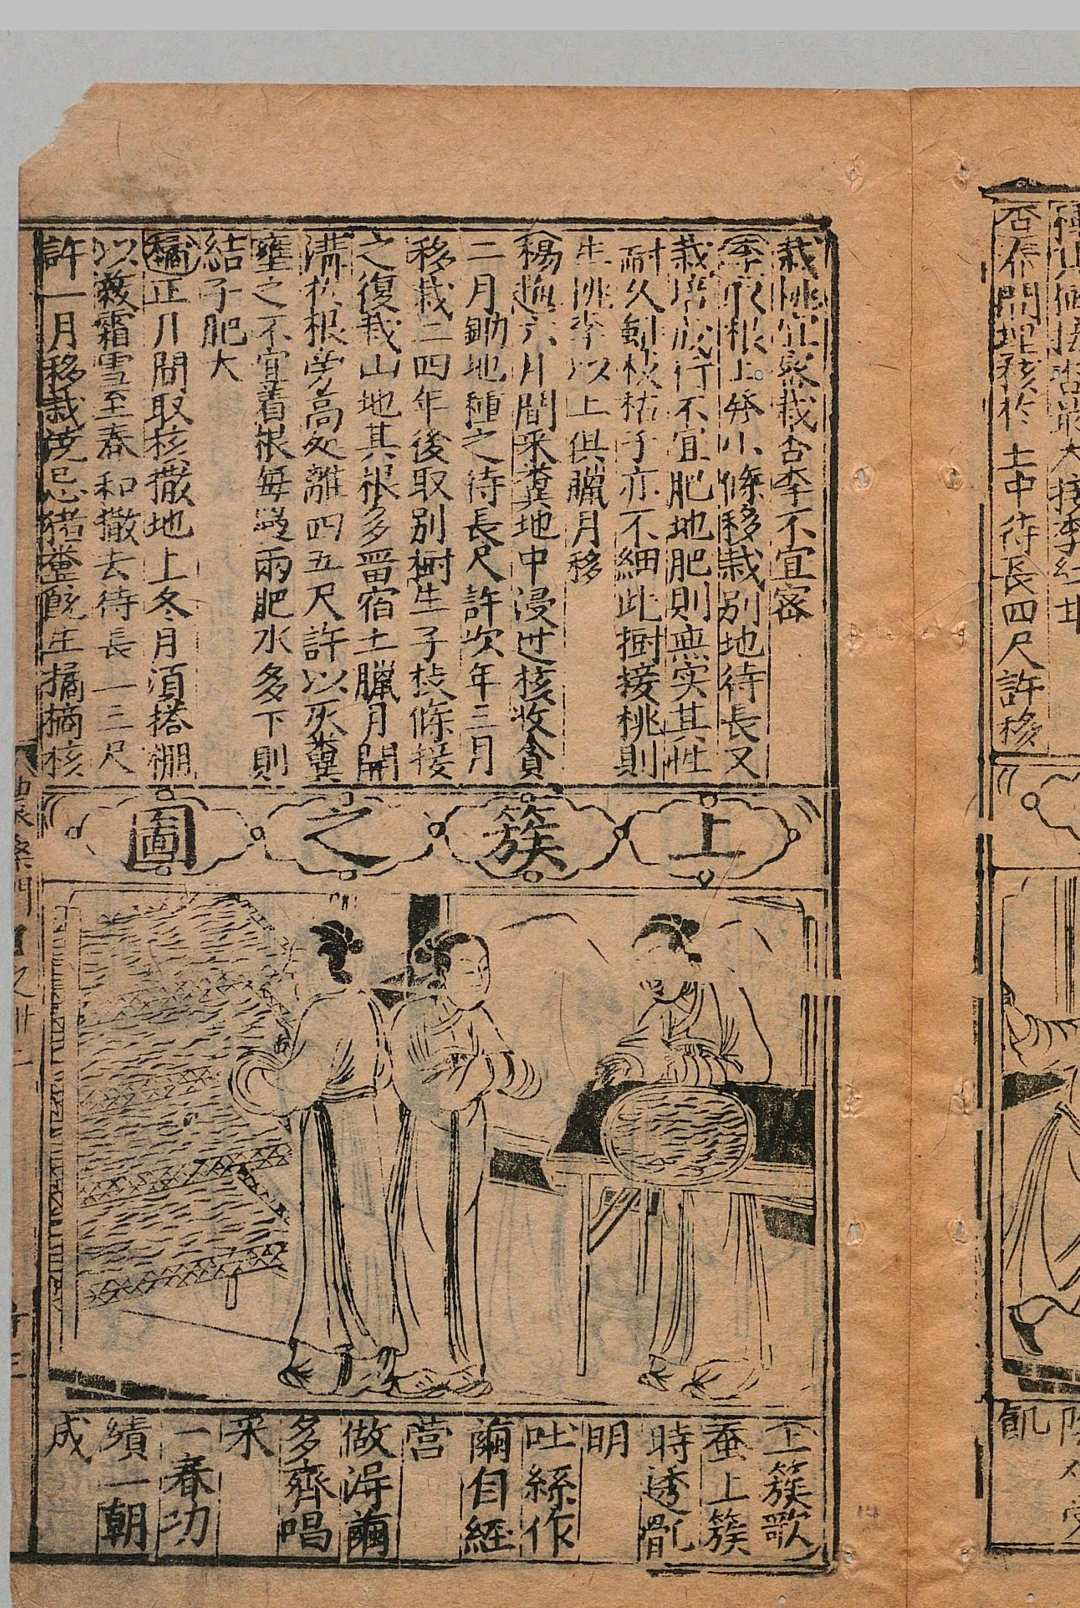 否春間埋核於土中待長四尺許移
飢
栽桃宜密栽杏李不宜密
李取根上發小條移栽別地待長又
栽培成行不宜肥地肥則無实其性
耐久雖枝枯子亦不細此樹接桃則
生桃李以上俱臘月移
楊梅六月間采糞地中浸过核收貪
二月鋤地種之待長尺許次年三月
移栽三四年後取別樹生子枝條接
之復栽山地其根多畱宿土臘月開
溝於根旁高処離四五尺許以灰糞
壅之不宜着根每遇雨肥水多下則
結子肥大
橘正月間取核撒地上冬月須搭棚
以蔽霜雪至春和撒去待長一二尺
許二月移栽澆忌猪糞既生橘摘核
上簇之圖
上簇歌
蚕上簇
時透骵
明
吐絲作
繭自經
营
做得繭
多齊唱
采
一春功
績一朝
成